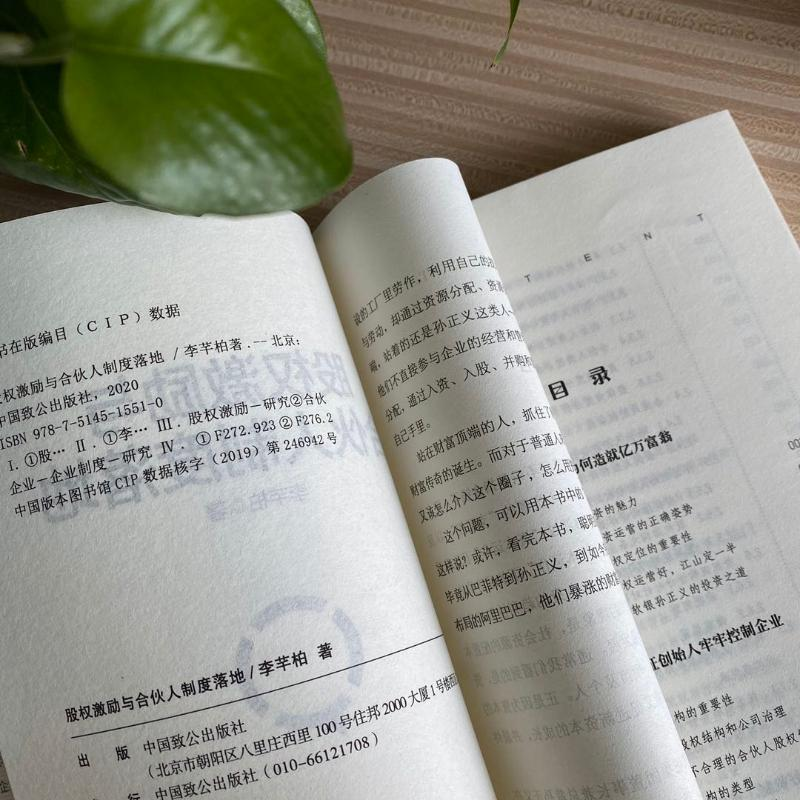 书在版编目（CIP）数据
股权激励与合伙人制度落地 / 李芊柏著. -- 北京：
中国致公出版社，2020
ISBN 978-7-5145-1551-0
Ⅰ. ①股… Ⅱ. ①李… Ⅲ. 股权激励－研究②合伙
企业－企业制度－研究 Ⅳ. ①F272.923②F276.2
中国版本图书馆CIP数据核字（2019）第246942号
股权激励与合伙人制度落地 / 李芊柏 著
出 版 中国致公出版社
（北京市朝阳区八里庄西里100号住邦2000大厦1号楼西区
行 中国致公出版社（010-66121708）
的工厂里劳作，利用自己的
与劳动，却通过资源分配、资
端，站着的还是孙正义这类人
他们不直接参与企业的经营和
分配，通过入资、入股、并购和
自己手里。
站在财富顶端的人，抓住了
财富传奇的诞生。而对于普通人
又该怎么介入这个圈子，怎么用
这个问题，可以用本书中的
这样说？或许，看完本书，聪明
毕竟从巴菲特到孙正义，到如今
布局的阿里巴巴，他们暴涨的财
T E N T
目 录
为何造就亿万富翁
资的魅力
资运营的正确姿势
权定位的重要性
权运营好，江山定一半
软银孙正义的投资之道
创始人牢牢控制企业
构的重要性
股权结构和公司治理
不合理的合伙人股权
构的类型